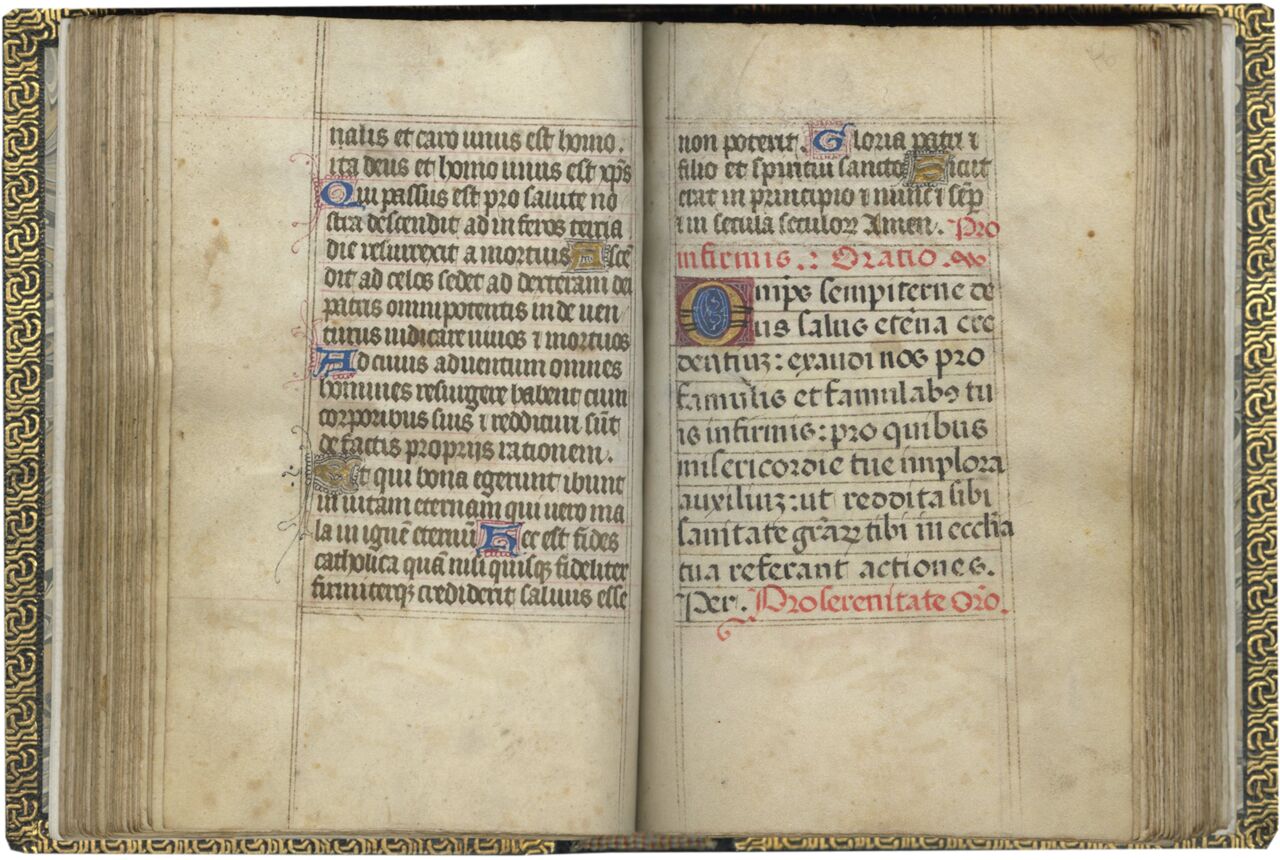 nalis et caro unus est homo.
ita deus et homo unus est xp̄s
Qui passus est pro salute no
stra descendit ad inferos tertia
die resurrexit a mortuis Ascē
dit ad celos sedet ad dexteram dei
patris omnipotentis inde uen
turus iudicare uiuos ⁊ mortuos
Ad cuius aduentum omnes
homines resurgere habent cum
corporibus suis ⁊ reddituri sūt
de factis proprijs rationem.
Et qui bona egerunt ibunt
in uitam eternam qui uero ma
la in ignē eternū Hec est fides
catholica quā nisi quisqꝫ fideliter
firmiterqꝫ crediderit saluus esse
non poterit. Gloria patri ⁊
filio et spiritui sancto Sicut
erat in principio ⁊ nunc ⁊ sēp
⁊ in secula seculoꝝ Amen. Pro
infirmis. : Oratio.
Omīps sempiterne de
us salus etēna cre
dentiuꝫ: exaudi nos pro
famulis et famulabꝰ tu
is infirmis: pro quibus
misericordie tue implora
auxiliuꝫ: ut reddita sibi
sanitate gr̄aꝝ tibi in ecclīa
tua referant actiones.
Per. Pro serenitate Orō.